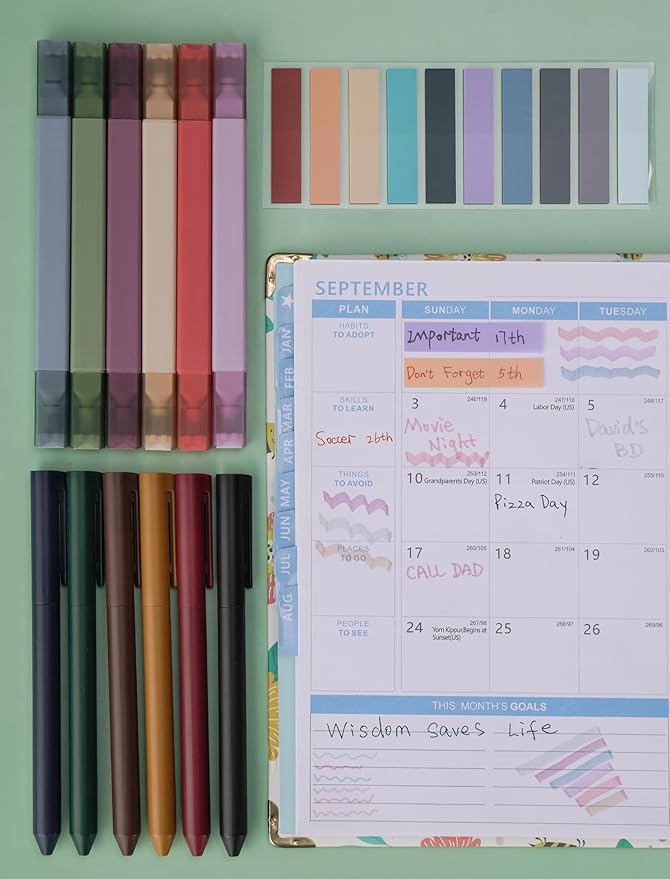 SEPTEMBER
PLAN SUNDAY MONDAY TUESDAY
HABITS
TO ADOPT
Important 17th
Don't Forget 5th
SKILLS
TO LEARN
Soccer 26th
3 246/119
Movie
Night
4 247/118
Labor Day (US)
5 248/117
David's
BD
THINGS
TO AVOID
10 253/112
Grandparents Day (US)
11 254/111
Patriot Day (US)
Pizza Day
12 255/110
PLACES
TO GO
17 260/105
CALL DAD
18 261/104
19 262/103
PEOPLE
TO SEE
24 267/98
Yom Kippur(Begins at
Sunset(US)
25 268/97
26 269/96
THIS MONTH'S GOALS
Wisdom Saves Life
JAN
FEB
MAR
APR
MAY
JUN
JUL
AUG